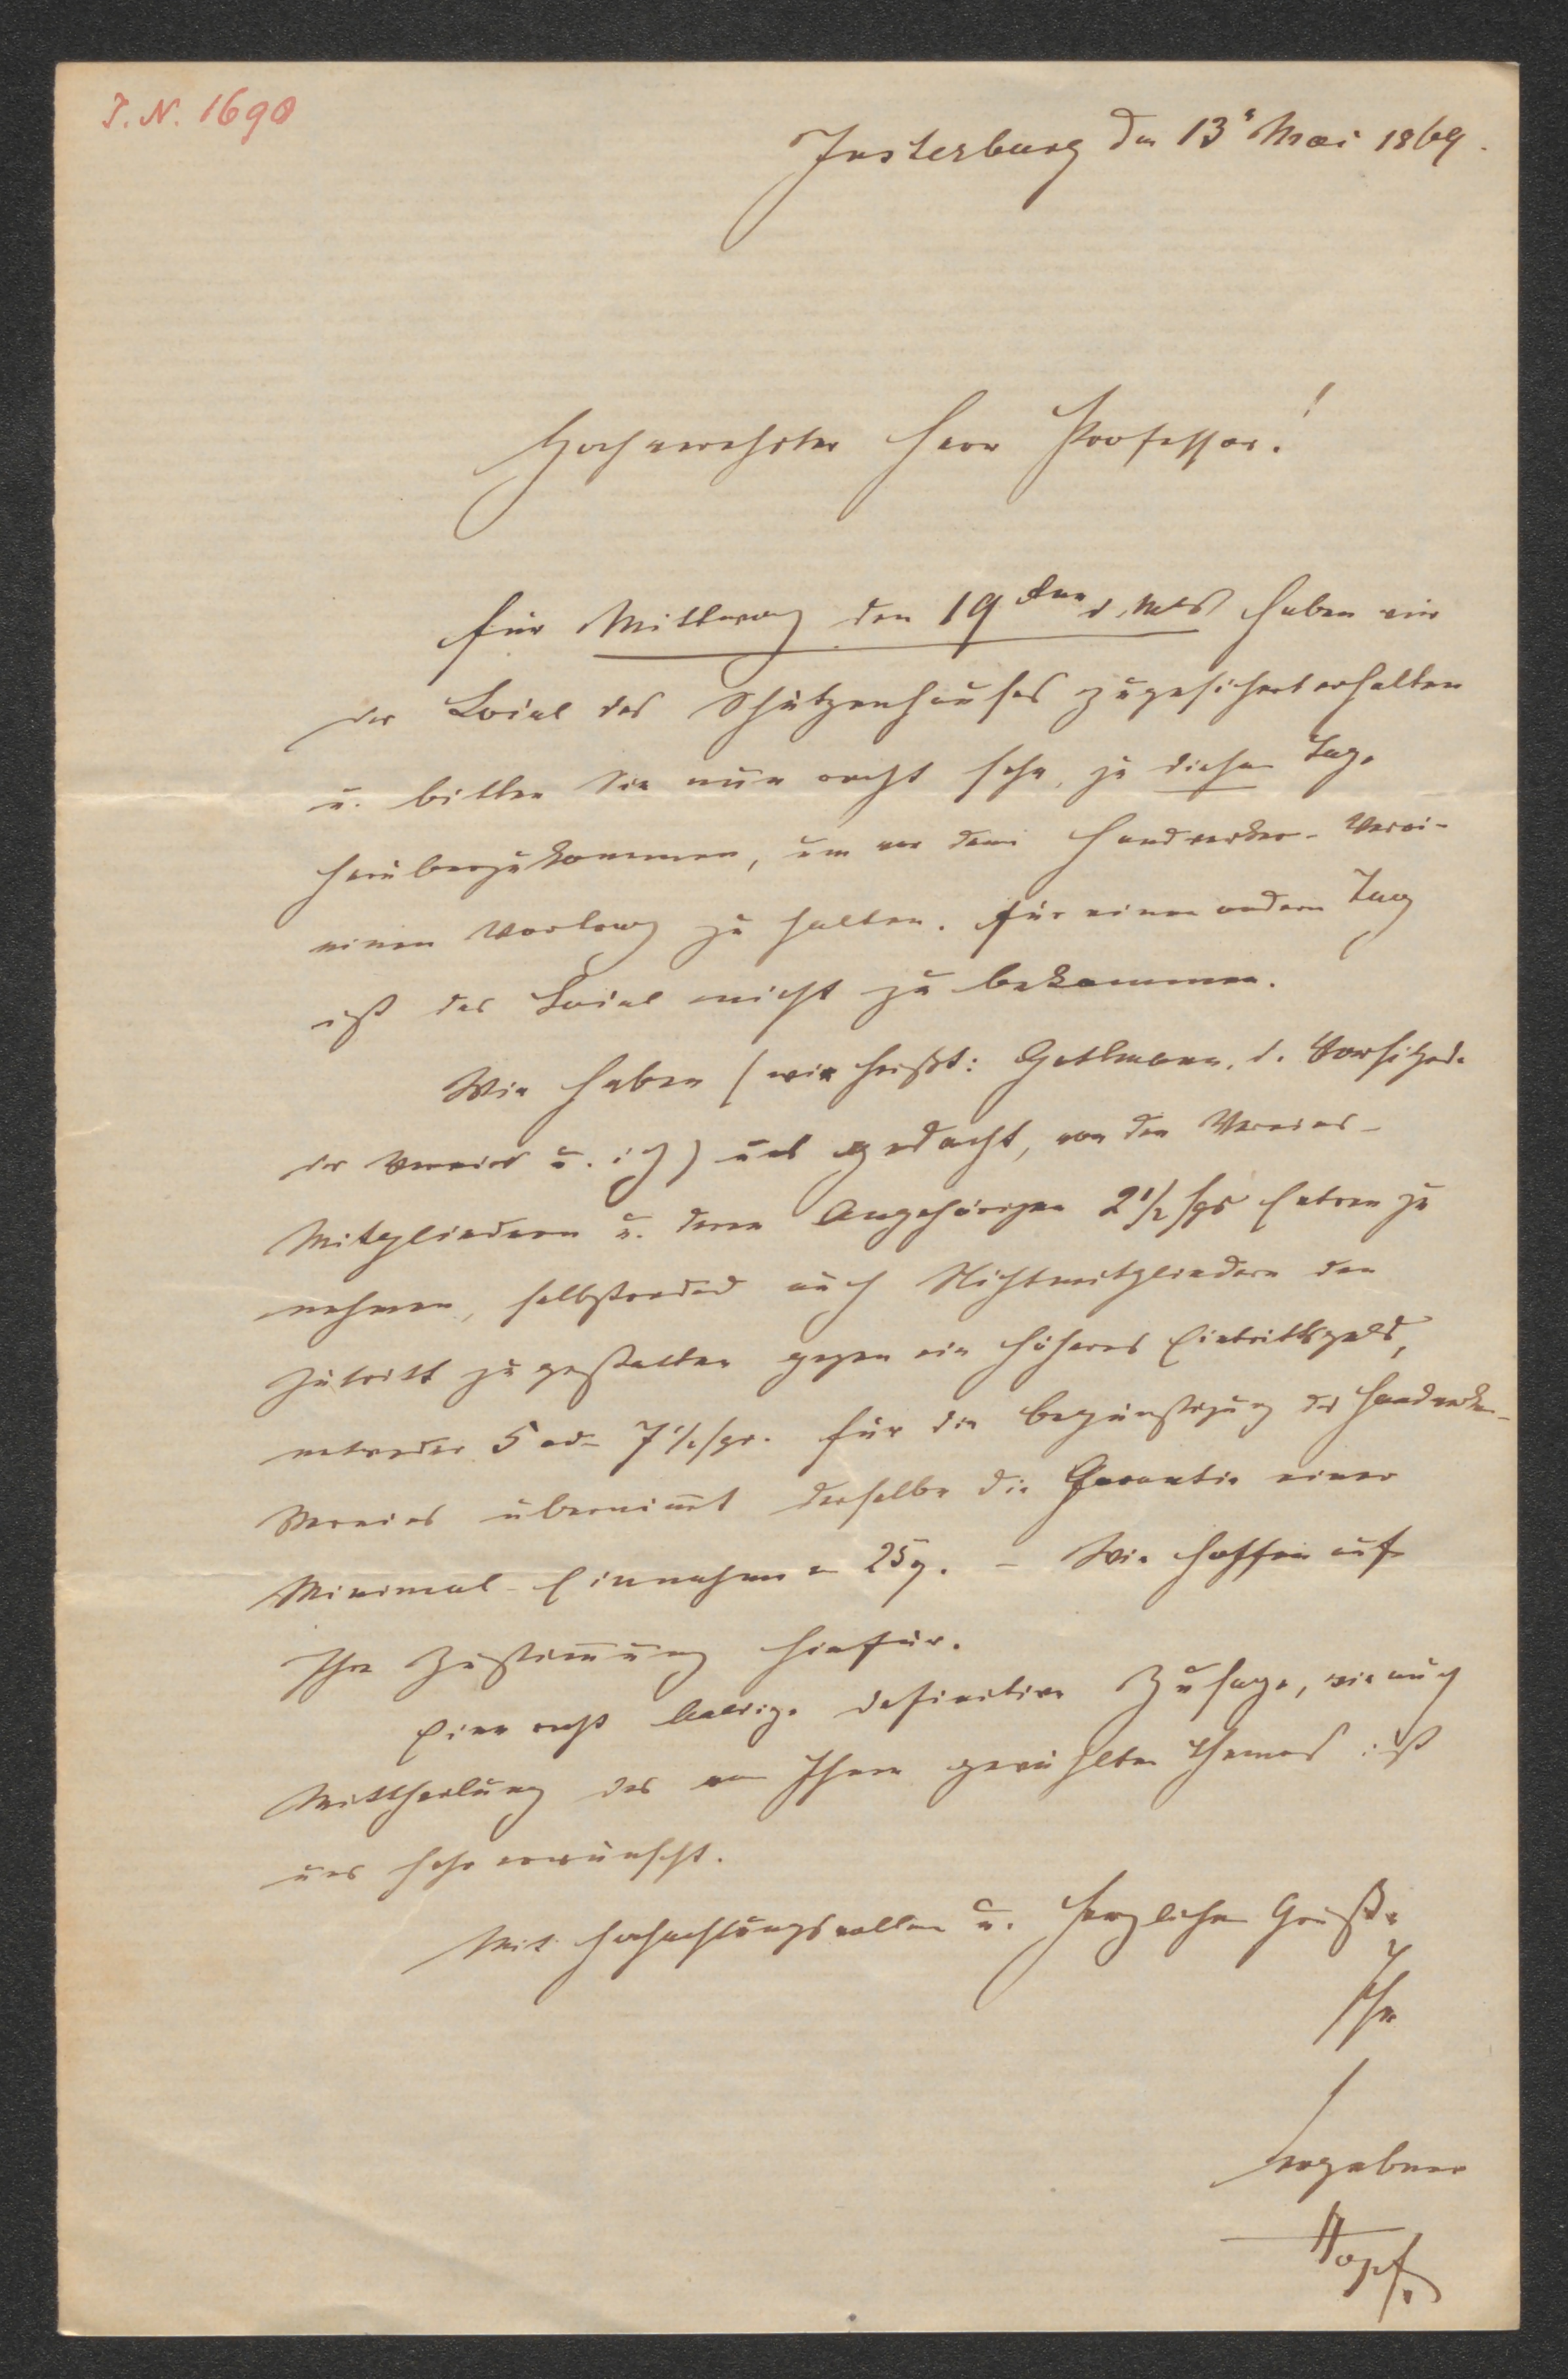 I. N. 1698
Insterburg den 13t Mai 1869.
Hochverehrter Herr Professor!
Für Mittwoch den 19ten d. Mts haben wir
das Local des Schützenhauses zugesichert erhalten
u. bitten Sie nun recht sehr, zu diesem Tage
herüberzukommen, um vor dem Handwerker-Verein
einen Vortrag zu halten. Für einen andern Tag
ist das Local nicht zu bekommen.
Wir haben (wir heißt: d. Vorsitzende
des Vereins u. ich) uns gedacht, von den Vereins-
Mitgliedern u. deren Angehörigen 2 1/2 sgr Entree zu
nehmen, selbstredend auch Nichtmitgliedern den
Zutritt zu gestatten gegen ein höheres Eintrittsgeld,
entweder 5 od. 7 1/2 sgr. Für die Begünstigung des Handwerker-
Vereins übernimmt derselbe die Garantie einer
Minimal-Einnahme v 25 – Wir hoffen auf
Ihre Zustimmung hiefür.
Eine recht baldige definitive Zusage, wie auch
Mittheilung des von Ihnen gewählten Themas ist
uns sehr erwünscht.
Mit hochachtungsvollem u. herzlichem Gruße
Ihr
ergebener
Hopf.